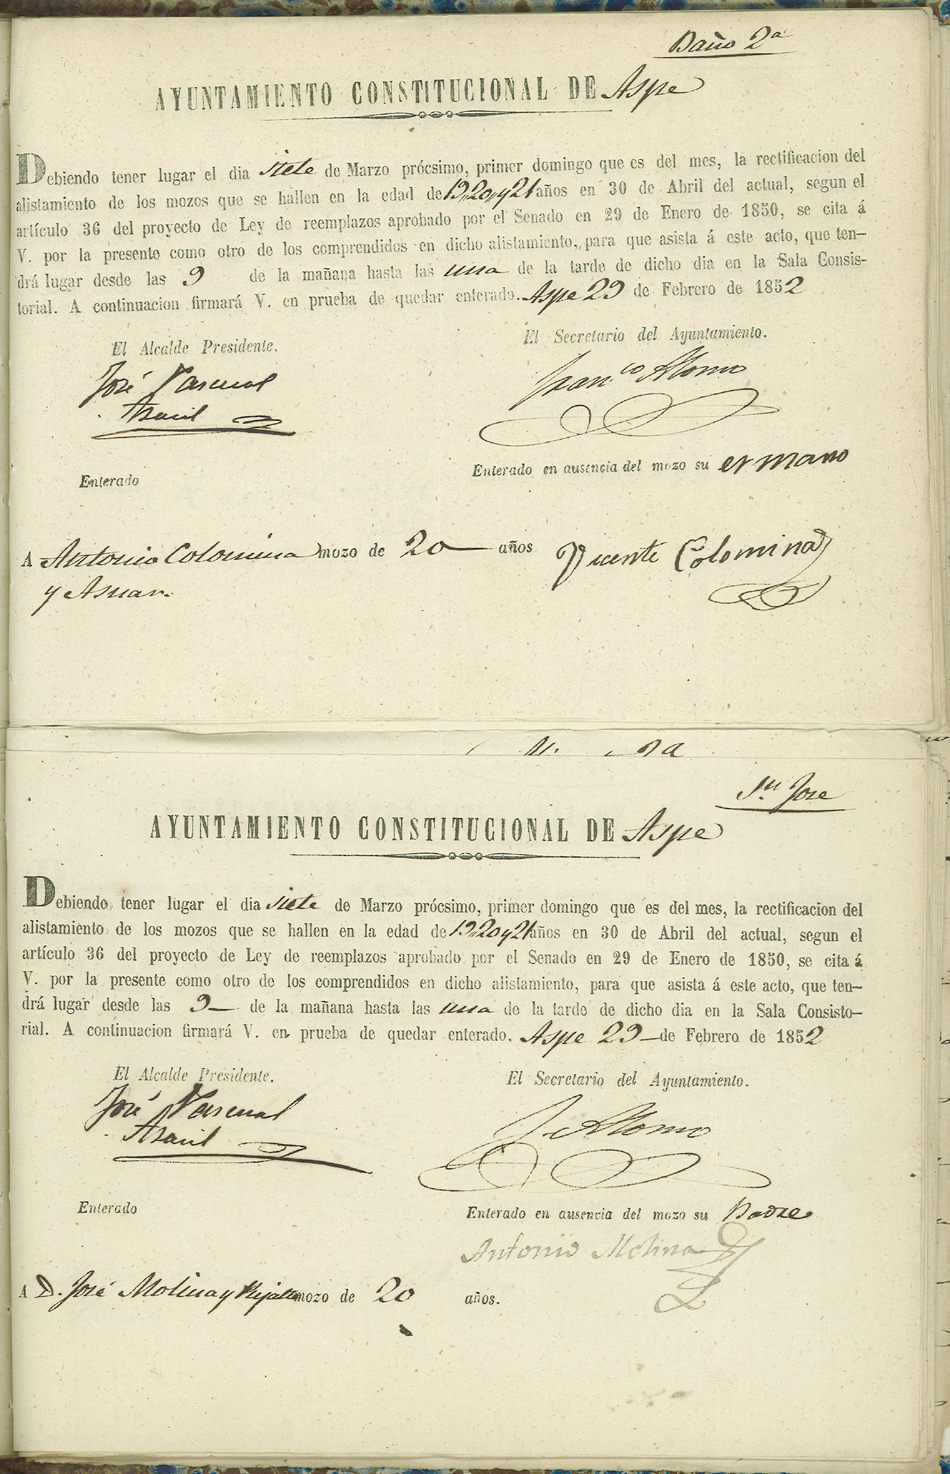 Baño 2ª
AYUNTAMIENTO CONSTITUCIONAL DE Aspe
Debiendo tener lugar el dia siete de Marzo prócsimo, primer domingo que es del mes, la rectificacion del
alistamiento de los mozos que se hallen en la edad de 19, 20, y 21 años en 30 de Abril del actual, segun el
artículo 36 del proyecto de Ley de reemplazos aprobado por el Senado en 29 de Enero de 1850, se cita á
V. por la presente como otro de los comprendidos en dicho alistamiento, para que asista á este acto, que ten—
drá lugar desde las 9 de la mañana hasta las una de la tarde de dicho dia en la Sala Consis—
torial. A continuacion firmará V. en prueba de quedar enterado. Aspe 29 de Febrero de 1852
El Alcalde Presidente.
El Secretario del Ayuntamiento.
José Pascual
Franco Alonso
Enterado
Enterado en ausencia del mozo su ermano
A Antonio Colomina mozo de 20 años
Vicente Colomina
y Asnar
Sn Jose
AYUNTAMIENTO CONSTITUCIONAL DE Aspe
Debiendo tener lugar el dia siete de Marzo prócsimo, primer domingo que es del mes, la rectificacion del
alistamiento de los mozos que se hallen en la edad de 19, 20 y 21 años en 30 de Abril del actual, segun el
artículo 36 del proyecto de Ley de reemplazos aprobado por el Senado en 29 de Enero de 1850, se cita á
V. por la presente como otro de los comprendidos en dicho alistamiento, para que asista á este acto, que ten—
drá lugar desde las 9 de la mañana hasta las una de la tarde de dicho dia en la Sala Consisto—
rial. A continuacion firmará V. en prueba de quedar enterado. Aspe 29 de Febrero de 1852
El Alcalde Presidente.
El Secretario del Ayuntamiento.
José Pascual
Alonso
Enterado
Enterado en ausencia del mozo su Padre
Antonio Molina
A D. José Molina y mozo de 20 años.